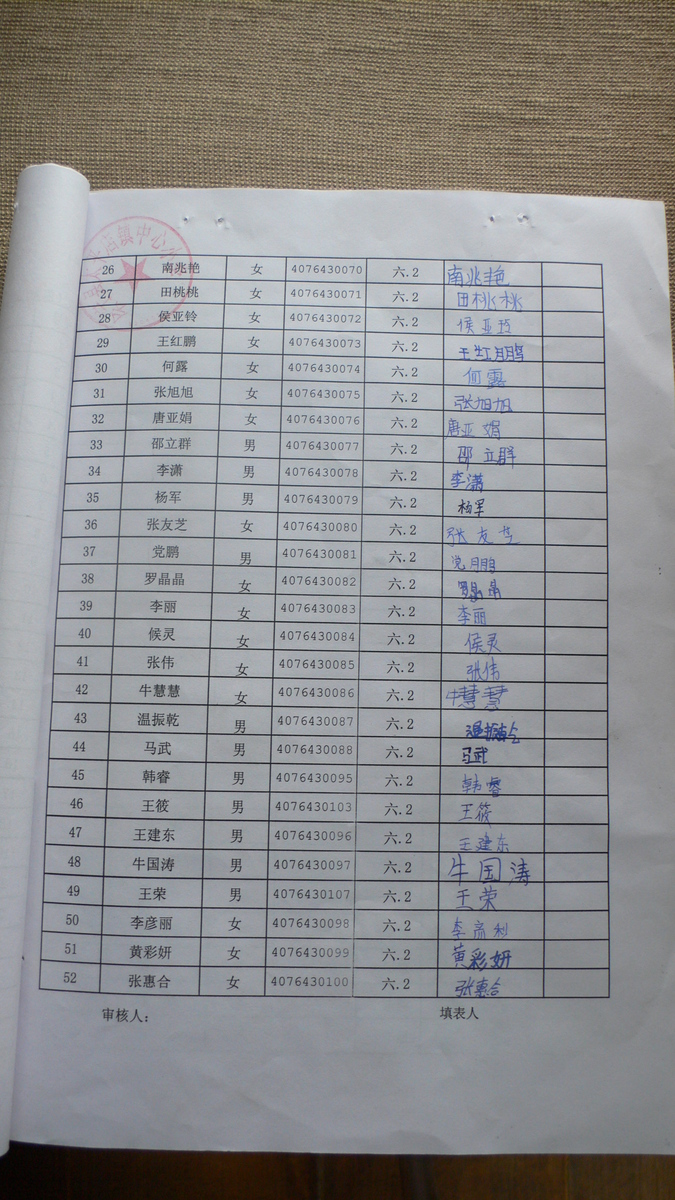 庙镇中心小
26 南兆艳 女 4076430070 六.2 南兆艳
27 田桃桃 女 4076430071 六.2 田桃桃
28 侯亚铃 女 4076430072 六.2 侯亚玲
29 王红鹏 女 4076430073 六.2 王红鹏
30 何露 女 4076430074 六.2 何露
31 张旭旭 女 4076430075 六.2 张旭旭
32 唐亚娟 女 4076430076 六.2 唐亚娟
33 邵立群 男 4076430077 六.2 邵立群
34 李潇 男 4076430078 六.2 李潇
35 杨军 男 4076430079 六.2 杨军
36 张友芝 女 4076430080 六.2 张友芝
37 党鹏 男 4076430081 六.2 党鹏
38 罗晶晶 女 4076430082 六.2 罗晶晶
39 李丽 女 4076430083 六.2 李丽
40 候灵 女 4076430084 六.2 侯灵
41 张伟 女 4076430085 六.2 张伟
42 牛慧慧 女 4076430086 六.2 牛慧慧
43 温振乾 男 4076430087 六.2
44 马武 男 4076430088 六.2 马武
45 韩睿 男 4076430095 六.2 韩睿
46 王筱 男 4076430103 六.2 王筱
47 王建东 男 4076430096 六.2 王建东
48 牛国涛 男 4076430097 六.2 牛国涛
49 王荣 男 4076430107 六.2 王荣
50 李彦丽 女 4076430098 六.2 李彦利
51 黄彩妍 女 4076430099 六.2 黄彩妍
52 张惠合 女 4076430100 六.2 张惠合
审核人： 填表人